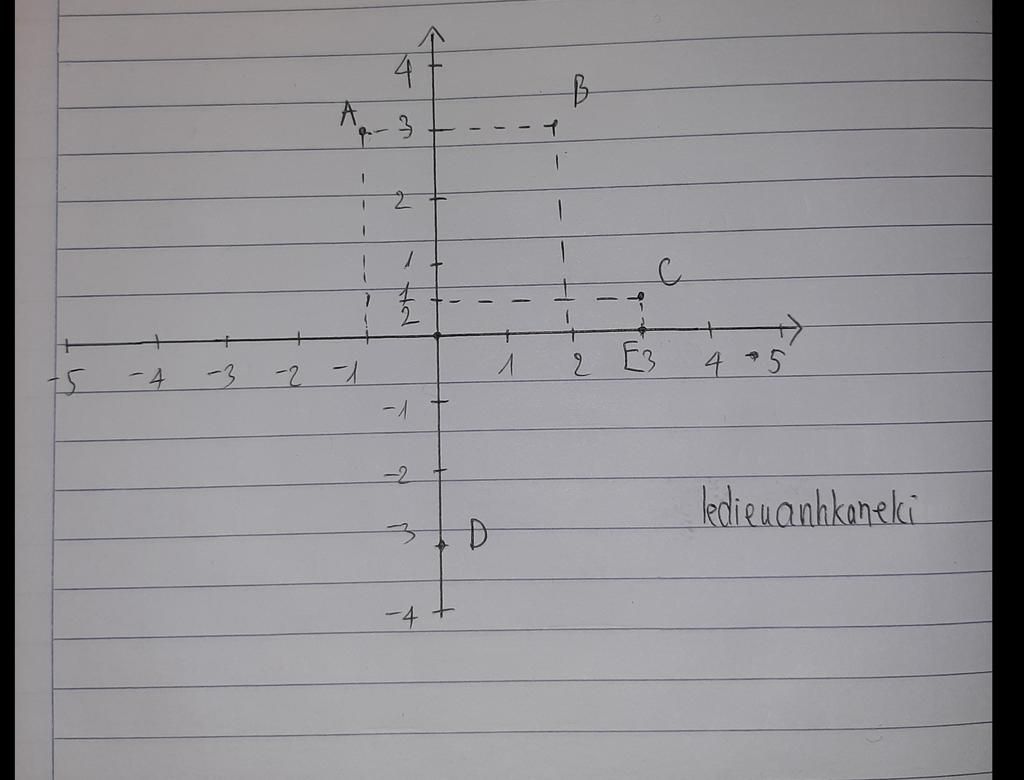 4
A 3 B
2
1
1/2 C
-5 -4 -3 -2 -1 1 2 E3 4 5
-1
-2
-3 D
-4
ledieuanhkaneki